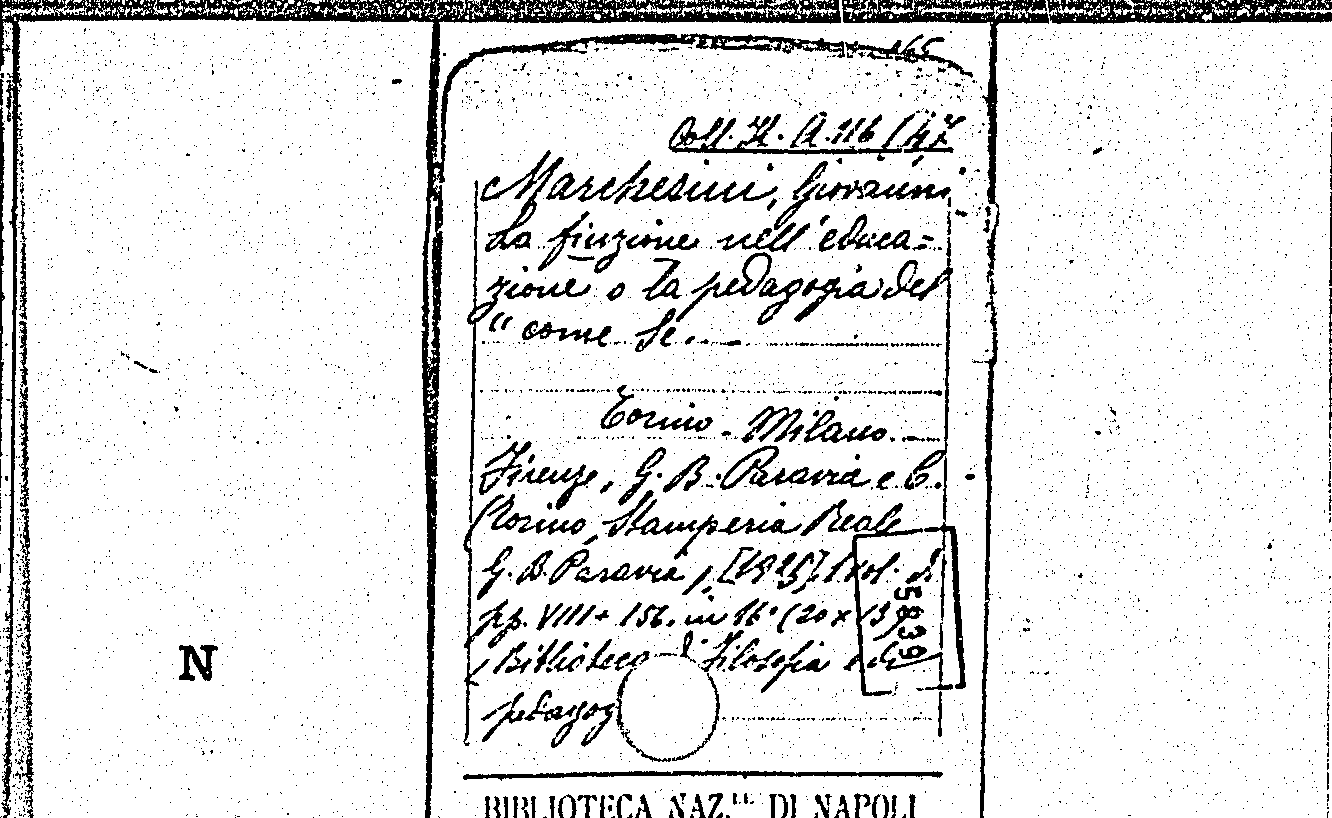 165
Coll. It. A. 116 (47
Marchesini, Giovanni
La finzione nell'educa=
zione o la pedagogia del
"come se...
Torino - Milano -
Firenze, G. B. Paravia e C.
(Torino, Stamperia Reale
G. B. Paravia), [1925] 1 vol. di
pp. VIII + 156. in 16° (20 x 13)
(Biblioteca di filosofia e di
pedagog
5839
N
BIBLIOTECA NAZ.LE DI NAPOLI